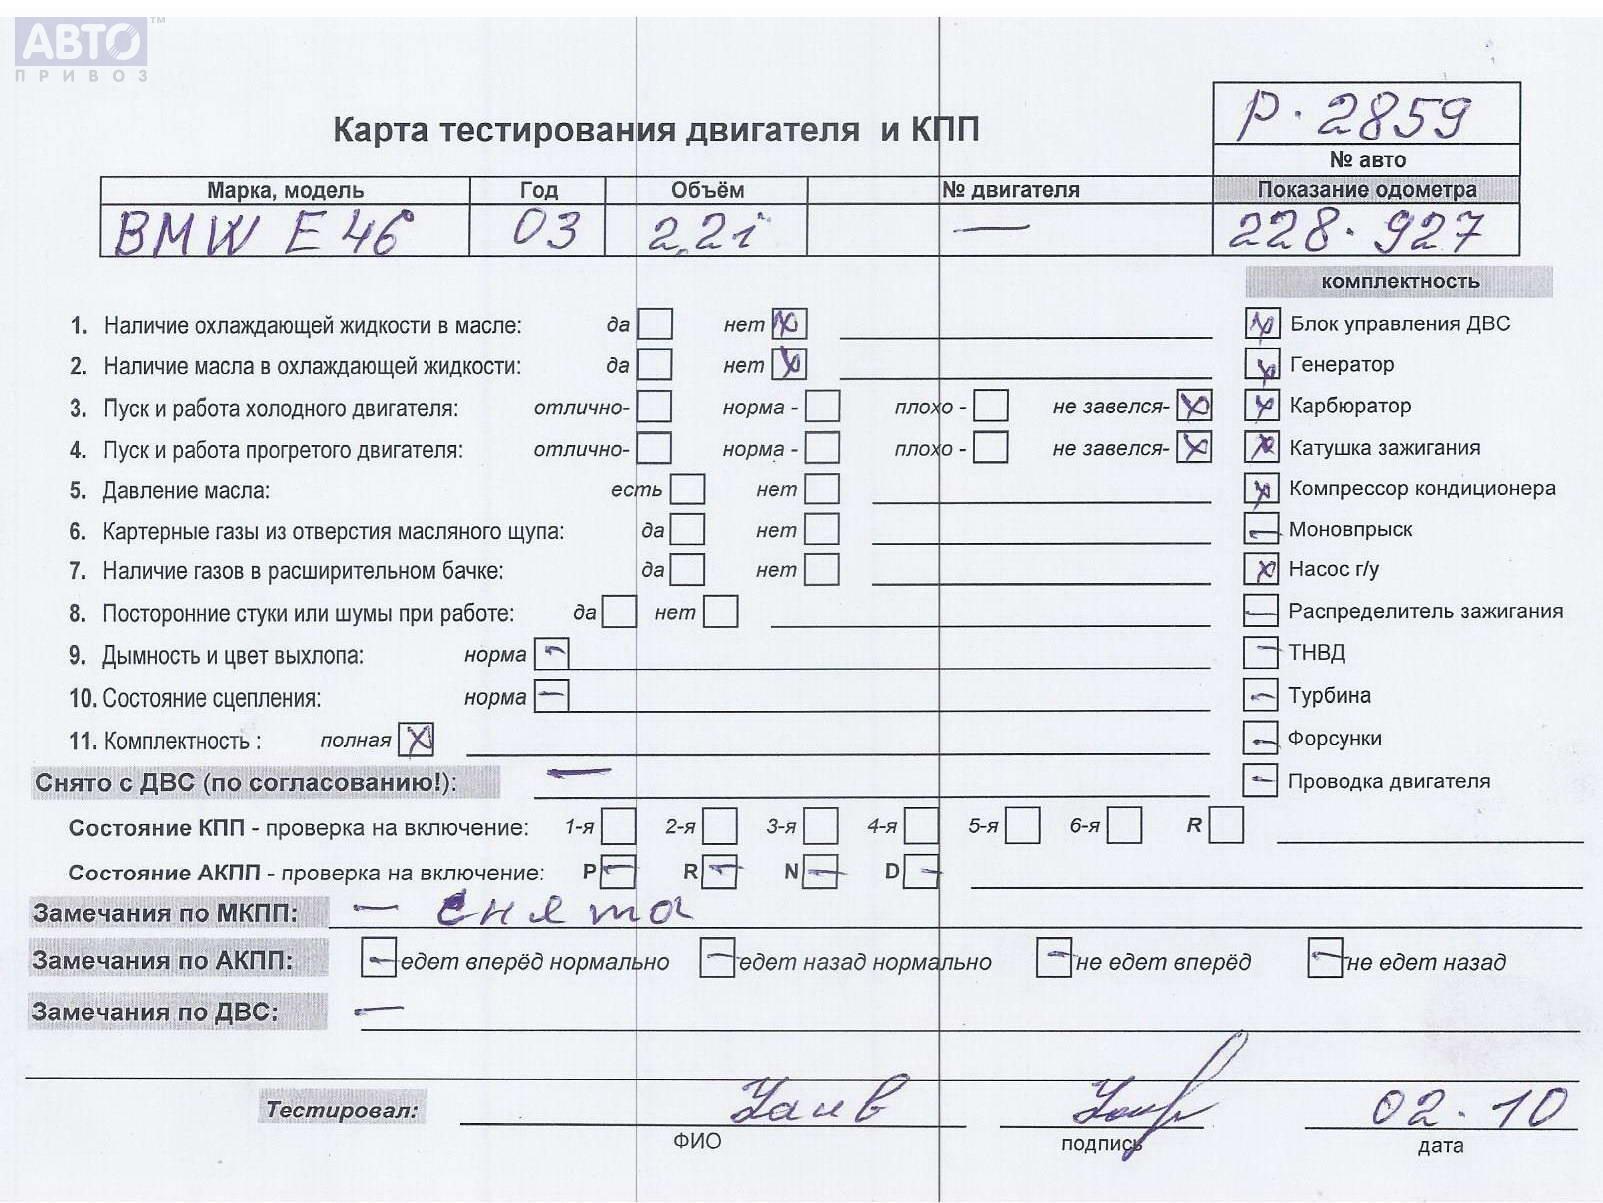 АВТО™
ПРИВОЗ
Р·2859
Карта тестирования двигателя и КПП
№ авто
Марка, модель Год Объём № двигателя Показание одометра
BMW E46 03 2,2i — 228·927
комплектность
1. Наличие охлаждающей жидкости в масле: да нет Блок управления ДВС
2. Наличие масла в охлаждающей жидкости: да нет Генератор
3. Пуск и работа холодного двигателя: отлично- норма - плохо - не завелся- Карбюратор
4. Пуск и работа прогретого двигателя: отлично- норма - плохо - не завелся- Катушка зажигания
5. Давление масла: есть нет Компрессор кондиционера
6. Картерные газы из отверстия масляного щупа: да нет Моновпрыск
7. Наличие газов в расширительном бачке: да нет Насос г/у
8. Посторонние стуки или шумы при работе: да нет Распределитель зажигания
9. Дымность и цвет выхлопа: норма ТНВД
10. Состояние сцепления: норма Турбина
11. Комплектность : полная Форсунки
Снято с ДВС (по согласованию!): — Проводка двигателя
Состояние КПП - проверка на включение: 1-я 2-я 3-я 4-я 5-я 6-я R
Состояние АКПП - проверка на включение: P R N D
Замечания по МКПП: — снята
Замечания по АКПП: едет вперёд нормально едет назад нормально не едет вперёд не едет назад
Замечания по ДВС: —
Тестировал: 02.10
ФИО подпись дата